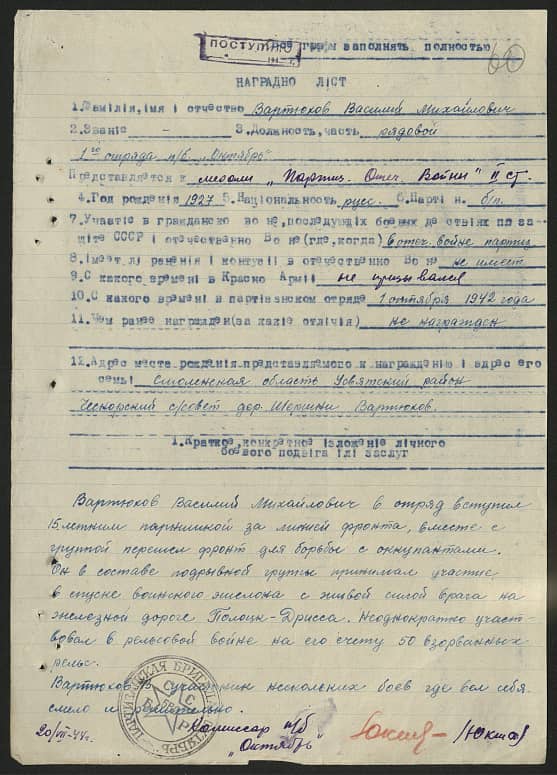 ПОСТУПИЛО
Все графы заполнять полностью
60
НАГРАДНО ЛІСТ
1.Фамілія, імя і отчество Вартюков Василий Михайлович
2.Званіе - 3.Должность, часть рядовой
1го отряда п/б "Октябрь"
Представляется к медали "Партиз. Отеч. Войны" II ст.
4.Год рожденія 1927 5.Національность русс. 6.Парті н. б/п.
7.Участіе в гражданско во не, последующіх боевых де ствіях по за-
щіте СССР і отечественно Во не(где, когда) в отеч. войне партиз
8.Імеет лі раненія і контузіі в отечественно Во не не имеет
9.С какого времені в Красно Арміі не призывался
10.С какого времені в партізанском отряде 1 октября 1942 года
11.Чем ранее награжден(за какіе отлічія) не награжден
12.Адрес места рожденія представляемого к награжденію і адрес его
семьі Смоленская область Усвятский район
с/совет дер. Шершни Вартюков.
1.Краткое, конкретное ізложеніе лічного
боевого подвіга ілі заслуг
Вартюков Василий Михайлович в отряд вступил
15летним парнишкой за линией фронта, вместе с
группой перешел фронт для борьбы с оккупантами.
Он в составе подрывной группы принимал участие
в спуске воинского эшелона с живой силой врага на
железной дороге Полоцк-Дрисса. Неоднократно участ-
вовал в рельсовой войне на его счету 50 взорванных
рельс.
Вартюков В. участник нескольких боев где вел себя
смело и решительно.
ПАРТИЗАНСКАЯ БРИГАДА "ОКТЯБРЬ"
СССР
20/VII-44г.
Комиссар п/б
"Октябрь"